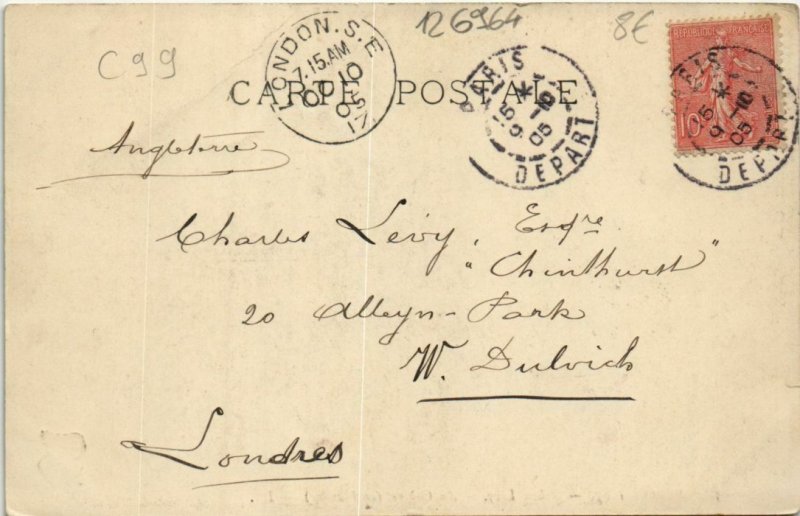 126964
8€
C99
LONDON. S.E
7.15.AM
OC 10
05
17
CARTE POSTALE
PARIS
9 -10
05
DEPART
REPUBLIQUE FRANÇAISE
10
PARIS
9 -10
05
DEPART
Angleterre
Charles Levy, Esqre
"Chinthurst"
20 Alleyn-Park
W. Dulwich
Londres